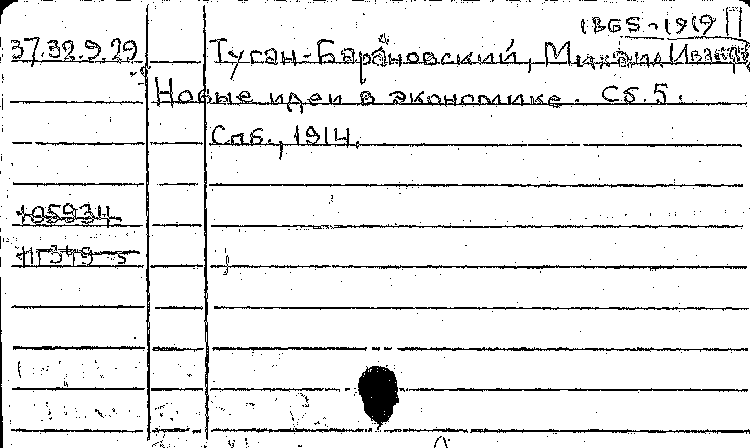 1865-1919
37.32.9.29 Туган-Барановский, Михаил Иванов
Новые идеи в экономике. Сб. 5.
Спб., 1914.
105934